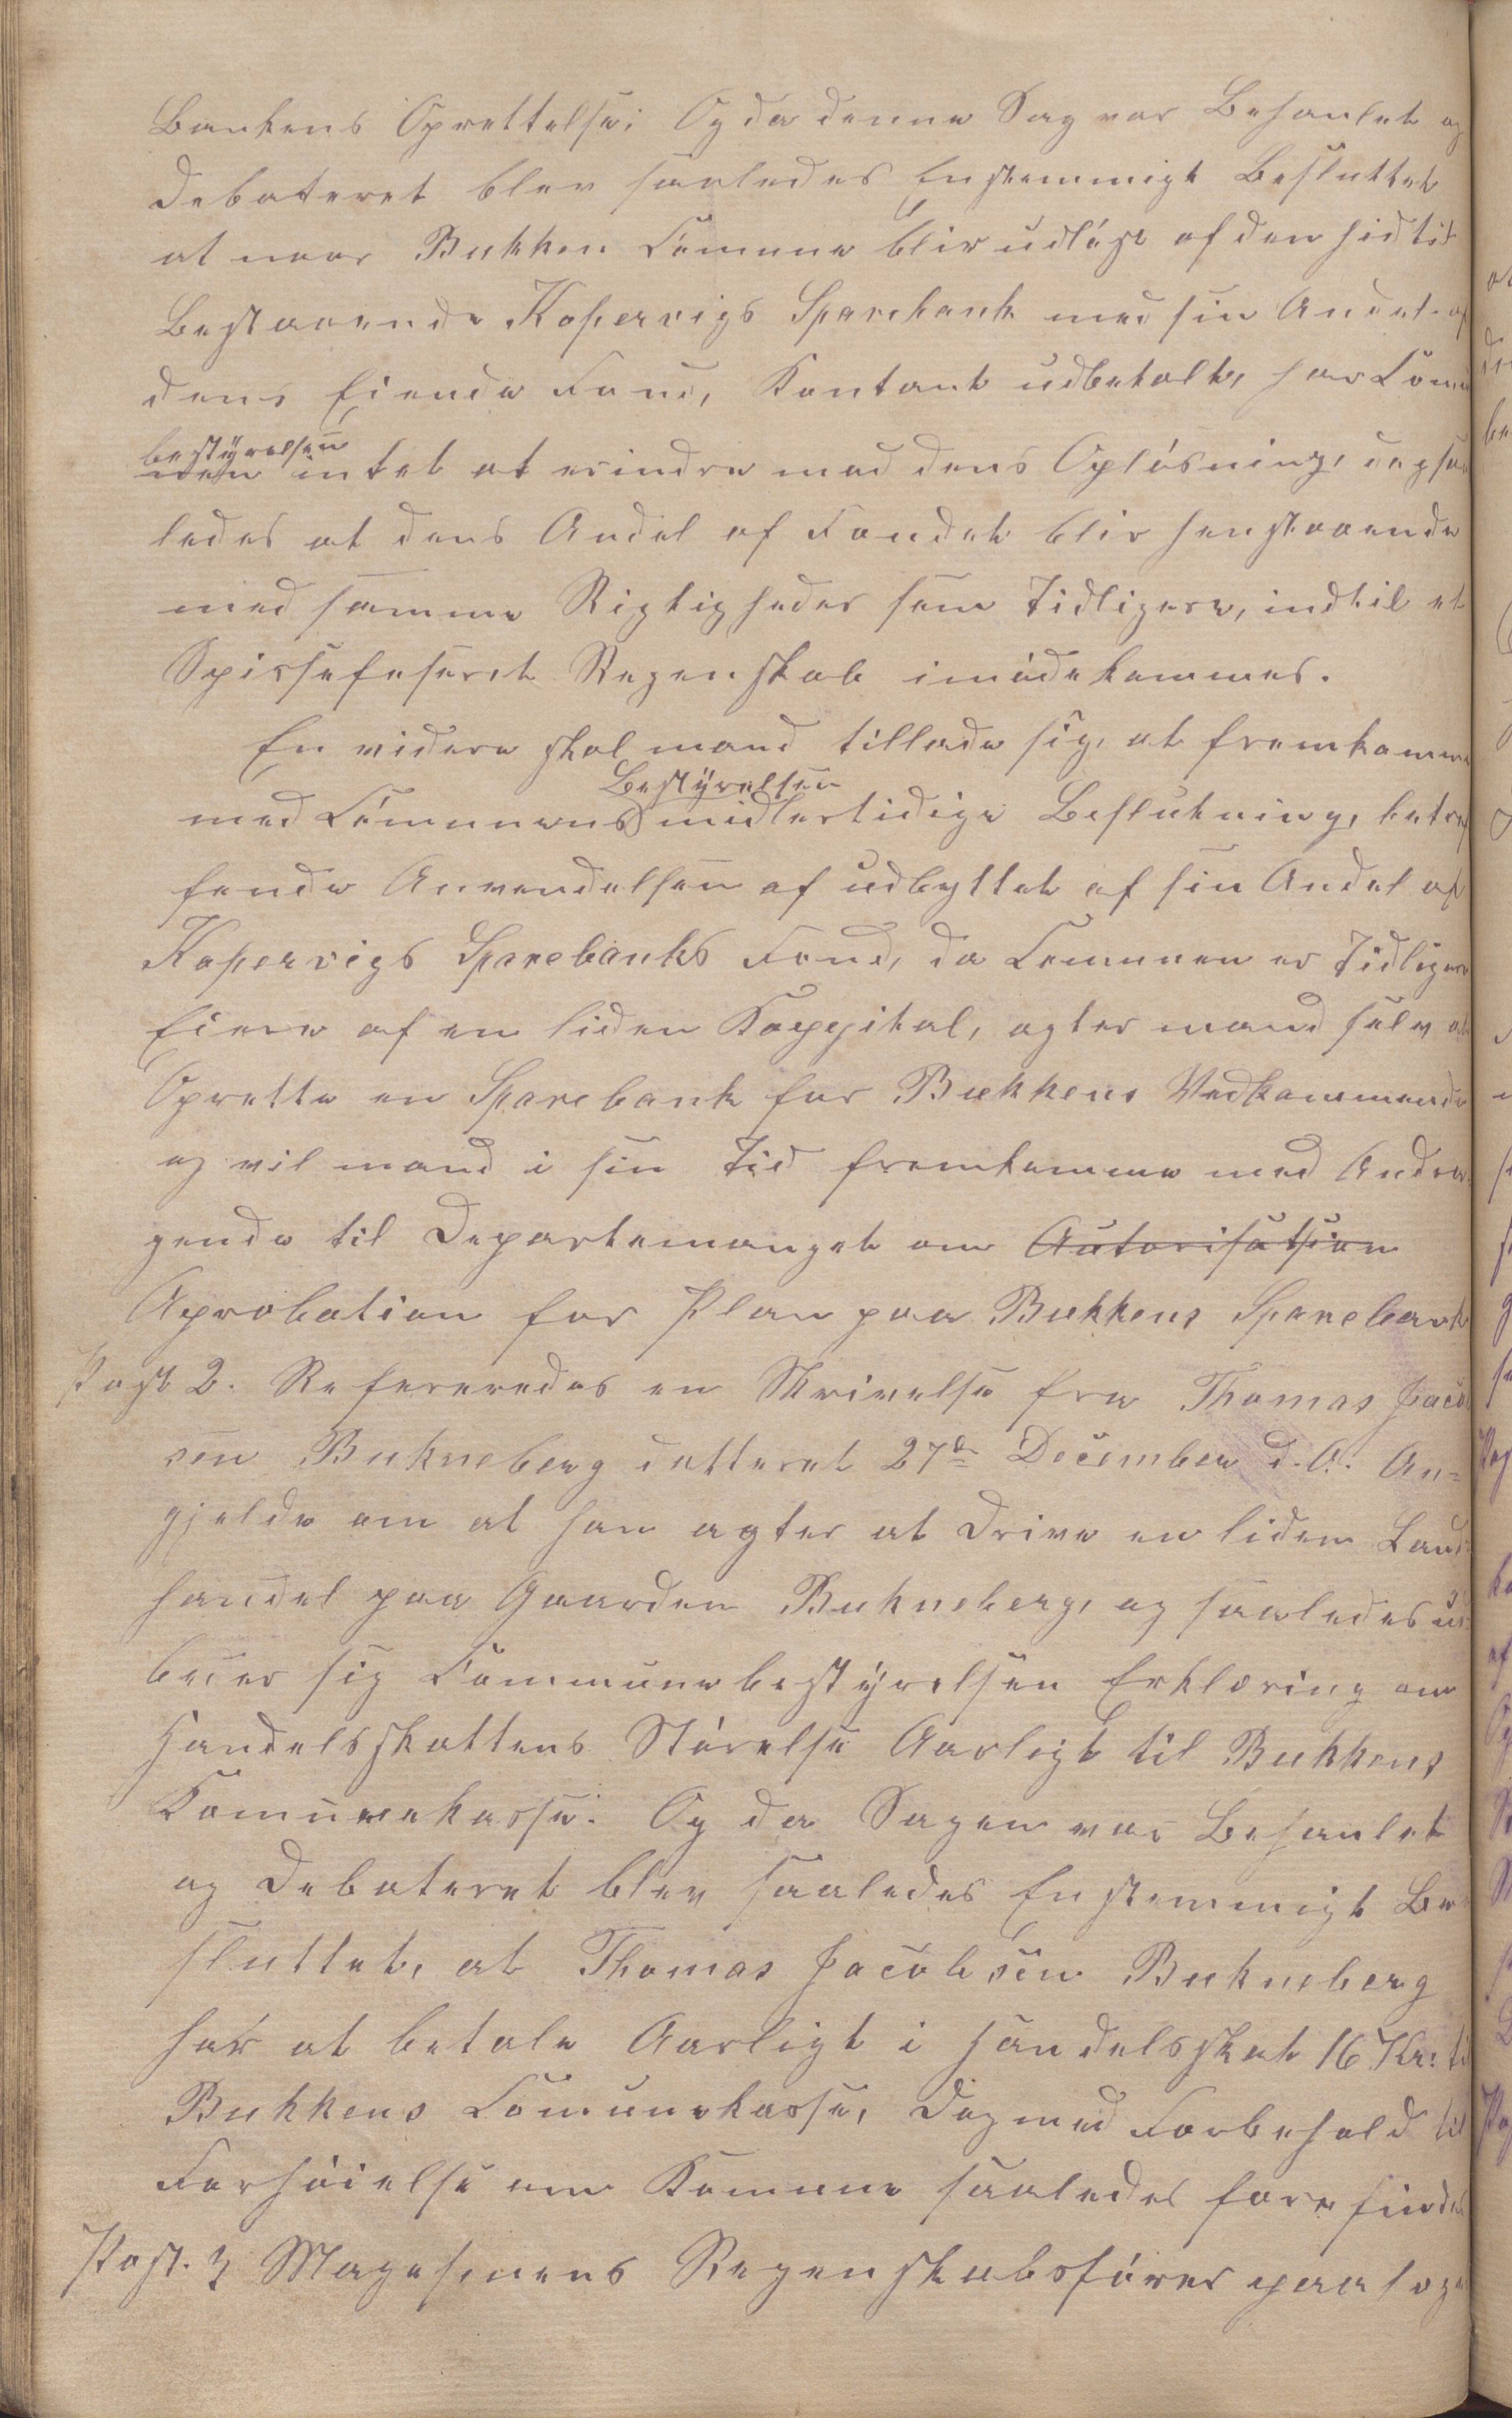 Bankens Oprettelse; Og da denne Sag var Behanlet og
Debateret blev saaledes Enstemmigt Besluttet
at naar Bukken Comune blir udløst af den hidtil
Bestaaende Kopervigs Sparebank med sin Andel af
dens Eiende Fond, Kontant udbetalt, har Comu
bestyrelsen
nen intet at erindre mod dens Opløsning, dog saa
ledes at dens Andel af Fondet blir henstaaende
med samme Rigtigheder som Tidligere, indtil et
Spissefeseret Regenskab imødekommes.
En videre skal mand tillade sig, at fremkomme
Bestyrelsen
med Comunens midlertidige Beslutning, betref
fende Anvendelsen af udbyttet af sin Andel af
Kopervigs Sparebanks Fond, da Comunen er Tidligere
Eiere af en liden Kappital, agter mand selv at
Oprette en Sparebank for Bukkens Vedkommende
og vil mand i sin Tid fremkomme med Andra
gende til Departemanget om Autorisatsion
Aprobation for Plan paa Bukkens Sparebank
Post 2. Refereredes en Skrivelse fra Thomas Jacob
sen Bukneberg datteret 27de December d.A. An=
gjelde om at han agter at Drive en liden Land=
handel paa Gaarden Bukneberg, og saaledes ud
beder sig Commune bestyrelsen Erklæring om
Handelsskattens Størelse Aarligt til Bukkens
Komunekasse. Og da Sagen var Behanlet
og Debateret blev saaledes Enstemmigt Be
sluttet, at Thomas Jacobsen Bukneberg
har at betale Aarligt i Handelsskat 16 Kr: til
Bukkens Comunekasse, Dog med Forbehold til
Forhøielse om Komune saaledes forefindes
Post. 3 Magesinens Regenskabsfører paalog